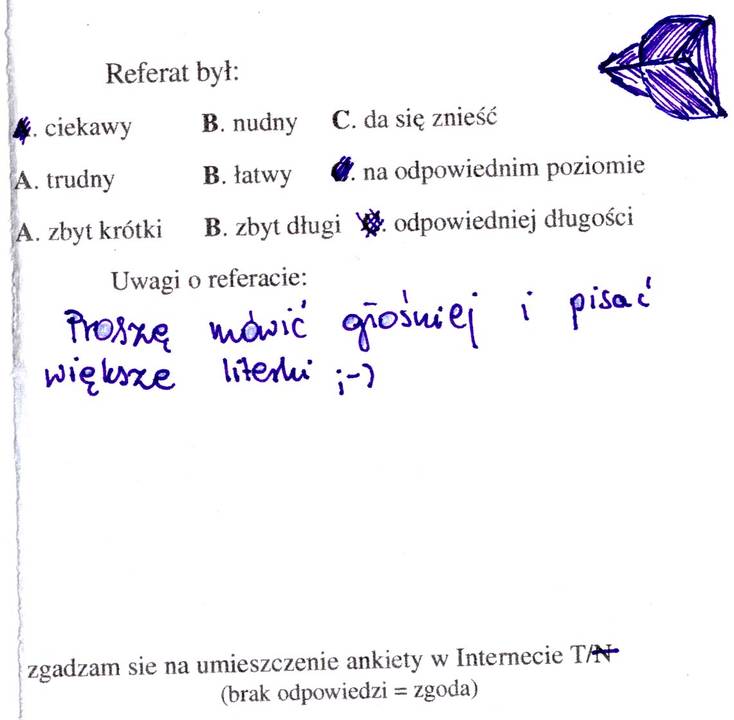 Referat był:
A. ciekawy B. nudny C. da się znieść
A. trudny B. łatwy C. na odpowiednim poziomie
A. zbyt krótki B. zbyt długi C. odpowiedniej długości
Uwagi o referacie:
Proszę mówić głośniej i pisać
większe literki ;-)
zgadzam sie na umieszczenie ankiety w Internecie T/N
(brak odpowiedzi = zgoda)